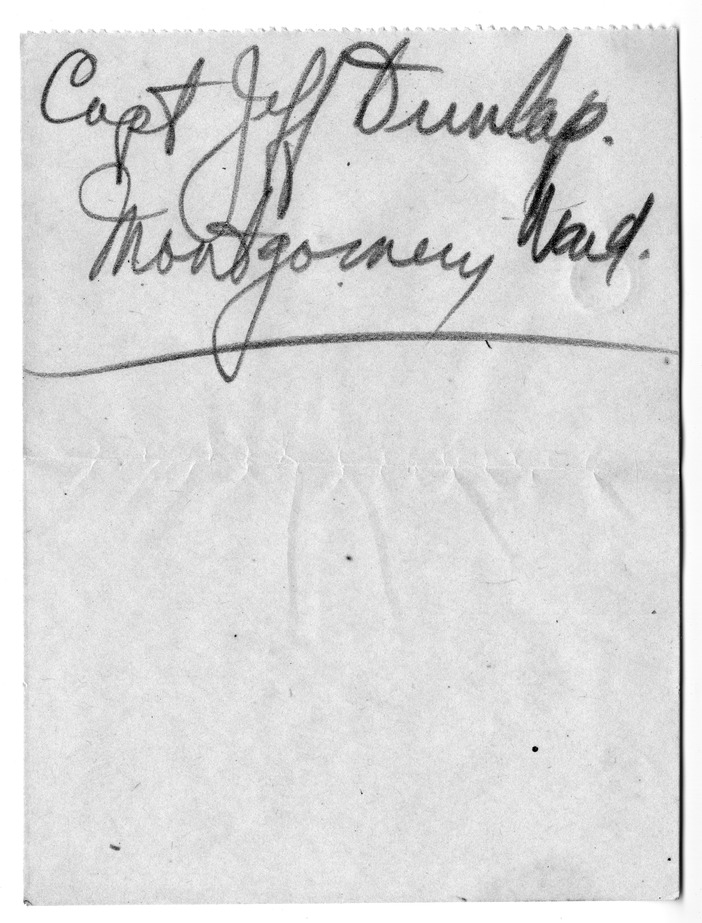 Capt Jeff Dunlap.
Montgomery Ward.